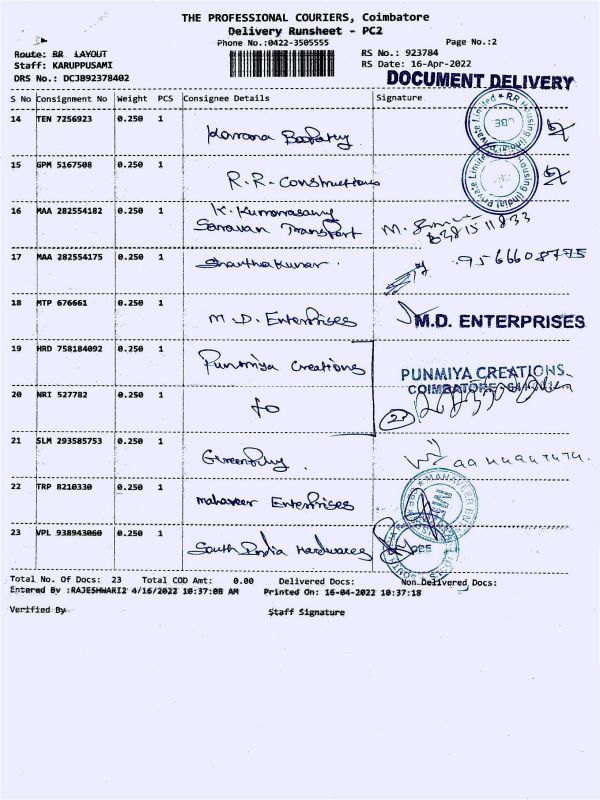 THE PROFESSIONAL COURIERS, Coimbatore
Delivery Runsheet - PC2
Phone No.:0422-3505555
Page No.:2
Route: RR LAYOUT
RS No.: 923784
Staff: KARUPPUSAMI
RS Date: 16-Apr-2022
DRS No.: DCJB92378402
DOCUMENT DELIVERY
S No Consignment No Weight PCS Consignee Details Signature
14 TEN 7256923 0.250 1
15 GPM 5167508 0.250 1 R.R-Constructions
16 MAA 282554182 0.250 1 K. Kumarasamy
Saravan Transport
17 MAA 282554175 0.250 1
18 MTP 676661 0.250 1 M.D. Enterprises M.D. ENTERPRISES
19 HRD 758184092 0.250 1 Punmiya Creations PUNMIYA CREATIONS
COIMBATORE
20 NRI 527782 0.250 1 to 2
21 SLM 293585753 0.250 1
22 TRP 8210330 0.250 1 Mahaveer Enterprises
23 VPL 938943060 0.250 1 South India Hardwares
Total No. Of Docs: 23 Total COD Amt: 0.00 Delivered Docs: Non Delivered Docs:
Entered By :RAJESHWARI2 4/16/2022 10:37:08 AM Printed On: 16-04-2022 10:37:18
Verified By Staff Signature